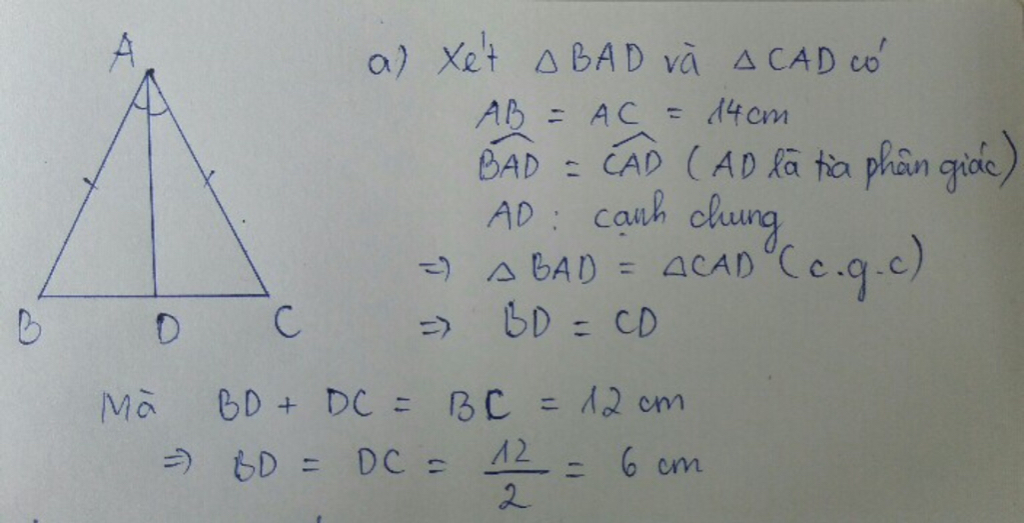 A
B D C
a) Xét △BAD và △CAD có
AB = AC = 14cm
$\widehat{BAD}$ = $\widehat{CAD}$ (AD là tia phân giác)
AD : cạnh chung
=> △BAD = △CAD (c.g.c)
=> BD = CD
Mà BD + DC = BC = 12 cm
=> BD = DC = $\frac{12}{2}$ = 6 cm